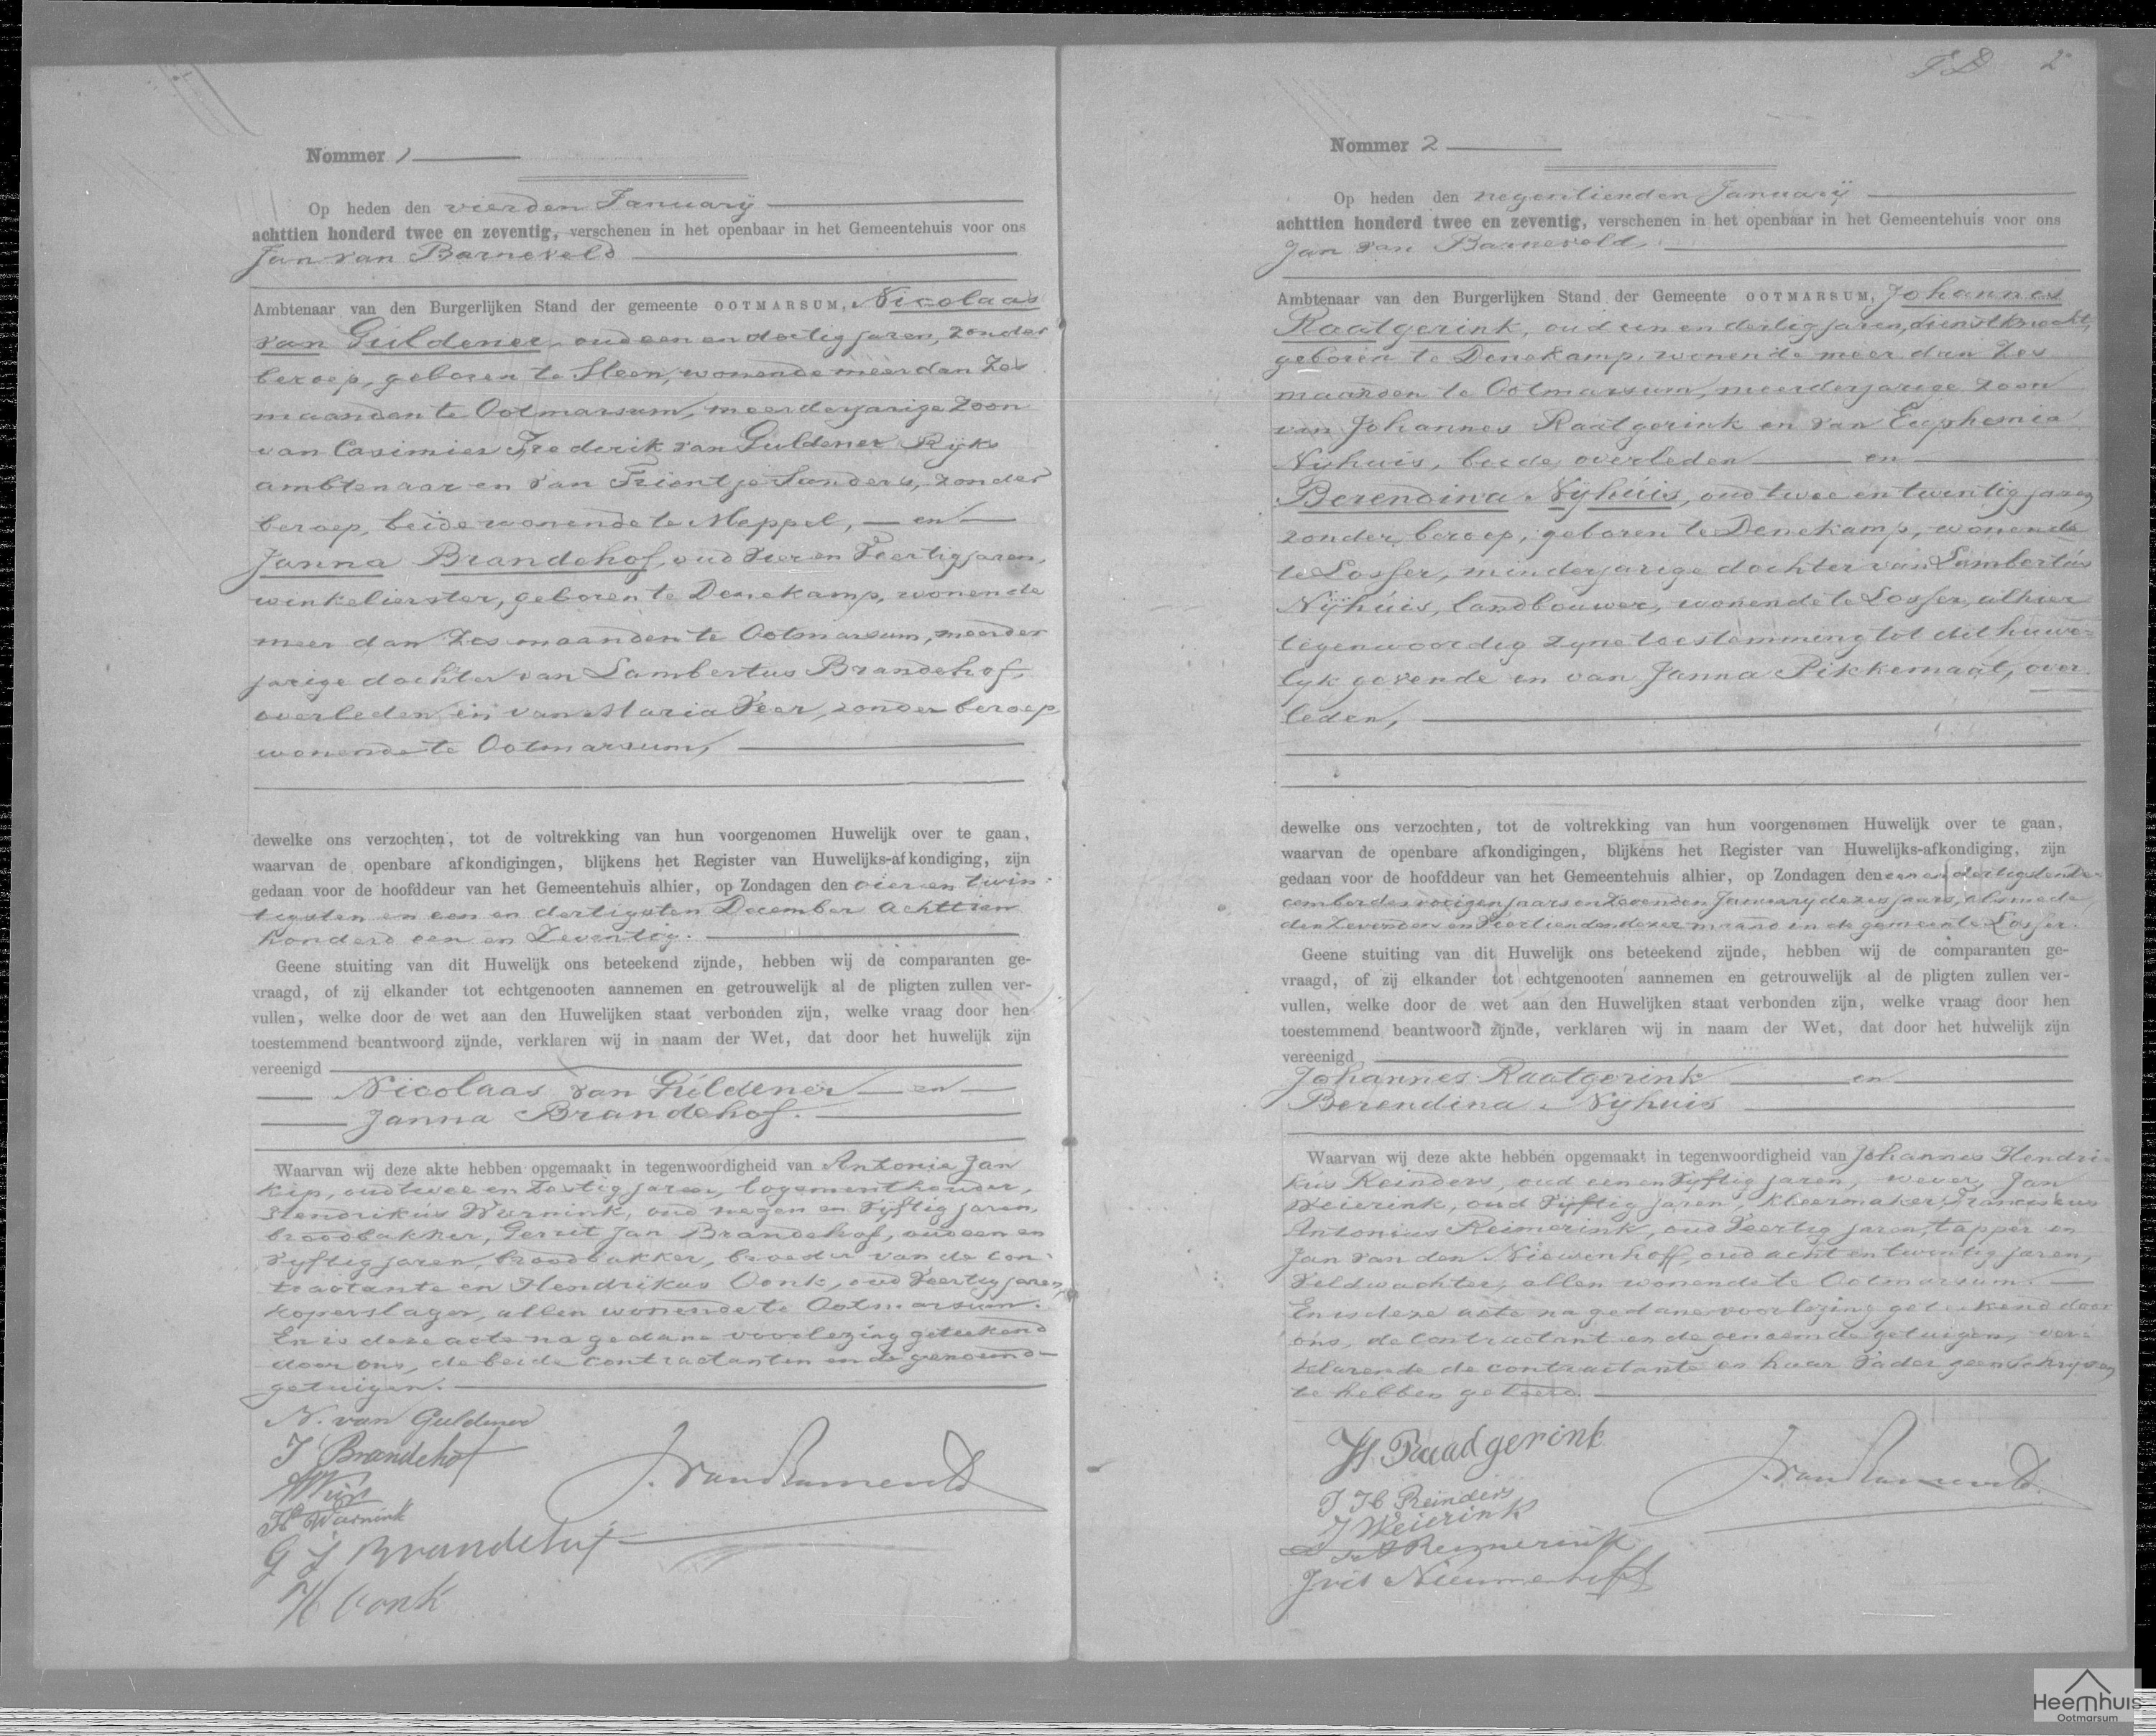 Nommer 1
Op heden den vierden January
achttien honderd twee en zeventig, verschenen in het openbaar in het Gemeentehuis voor ons
Jan van Barneveld
Ambtenaar van den Burgerlijken Stand der gemeente OOTMARSUM, Nicolaas
van Güldener, oud een en dertig jaren, zonder
beroep, geboren te Sleen, wonende meer dan zes
maanden te Ootmarsum, meerderjarige zoon
van Casimier Frederik van Güldener Rijks
ambtenaar en van Trientje Sanders, zonder
beroep, beide wonende te Meppel, en
Janna Brandehof, oud vier en veertig jaren,
winkelierster, geboren te Denekamp, wonende
meer dan zes maanden te Ootmarsum, meerder
jarige dochter van Lambertus Brandehof,
overleden en van Maria Veer, zonder beroep
wonende te Ootmarsum,
dewelke ons verzochten, tot de voltrekking van hun voorgenomen Huwelijk over te gaan,
waarvan de openbare afkondigingen, blijkens het Register van Huwelijks-afkondiging, zijn
gedaan voor de hoofddeur van het Gemeentehuis alhier, op Zondagen den vier en twin
tigsten en een en dertigsten December achttien
honderd een en zeventig.
Geene stuiting van dit Huwelijk ons beteekend zijnde, hebben wij de comparanten ge-
vraagd, of zij elkander tot echtgenooten aannemen en getrouwelijk al de pligten zullen ver-
vullen, welke door de wet aan den Huwelijken staat verbonden zijn, welke vraag door hen
toestemmend beantwoord zijnde, verklaren wij in naam der Wet, dat door het huwelijk zijn
vereenigd
Nicolaas van Güldener en
Janna Brandehof.
Waarvan wij deze akte hebben opgemaakt in tegenwoordigheid van Antonie Jan
Kip, oud twee en zestig jaren, logementhouder,
Hendrikus Warnink, oud negen en vijftig jaren,
broodbakker, Gerrit Jan Brandehof, oud een en
vijftig jaren, broodbakker, broeder van de con-
tractante en Hendrikus Vonk, oud veertig jaren,
koperslager, allen wonende te Ootmarsum.
En is deze acte na gedane voorlezing geteekend
door ons, de beide contractanten en de genoemde
getuigen.
N. van Guldener
J Brandehof
H Warnink
G J Brandehof
H Vonk
J. van Barneveld
2
Nommer 2
Op heden den negentienden January
achttien honderd twee en zeventig, verschenen in het openbaar in het Gemeentehuis voor ons
Jan van Barneveld,
Ambtenaar van den Burgerlijken Stand der Gemeente OOTMARSUM, Johannes
Raatgerink, oud een en dertig jaren, dienstknecht,
geboren te Denekamp, wonende meer dan zes
maanden te Ootmarsum, meerderjarige zoon
van Johannes Raatgerink en van Euphemia
Nijhuis, beide overleden en
Berendina Nijhuis, oud twee en twintig jaren,
zonder beroep, geboren te Denekamp, wonende
te Losser, minderjarige dochter van Lambertus
Nijhúis, landbouwer, wonende te Losser, alhier
tegenwoordig zijne toestemming tot dit huwe-
lyk gevende en van Janna Pikkemaat, over
leden,
dewelke ons verzochten, tot de voltrekking van hun voorgenomen Huwelijk over te gaan,
waarvan de openbare afkondigingen, blijkens het Register van Huwelijks-afkondiging, zijn
gedaan voor de hoofddeur van het Gemeentehuis alhier, op Zondagen den een en dertigsten De-
cember des vorigen jaars en zevenden January dezes jaars, alsmede
den zevenden en veertienden dezer maand in de gemeente Losser.
Geene stuiting van dit Huwelijk ons beteekend zijnde, hebben wij de comparanten ge-
vraagd, of zij elkander tot echtgenooten aannemen en getrouwelijk al de pligten zullen ver-
vullen, welke door de wet aan den Huwelijken staat verbonden zijn, welke vraag door hen
toestemmend beantwoord zijnde, verklaren wij in naam der Wet, dat door het huwelijk zijn
vereenigd
Johannes Raatgerink en
Berendina Nyhuis
Waarvan wij deze akte hebben opgemaakt in tegenwoordigheid van Johannes Hendri-
kus Reinders, oud een en vijftig jaren, wever, Jan
Weierink, oud vijftig jaren, kleermaker, Franciscus
Antonius Reimerink, oud veertig jaren, tapper en
Jan van den Nieuwenhoff, oud acht en twintig jaren,
veldwachter, allen wonende te Ootmarsum.
En is deze acte na gedane voorlezing geteekend door
ons, de contractant en de genoemde getuigen, ver-
klarende de contractante en haar vader geen schrijven
te hebben geleerd.
H Raadgerink
J H Reinders
J Weierink
F A Reimerink
J. van Barneveld
Heemhuis
Ootmarsum